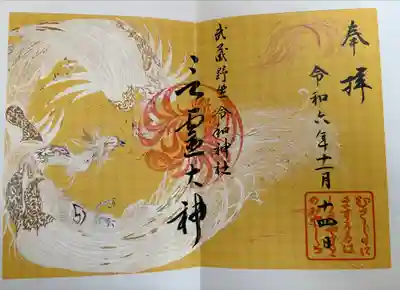 奉拝
令和六年十一月十四日
武蔵野坐令和神社
言霊大神